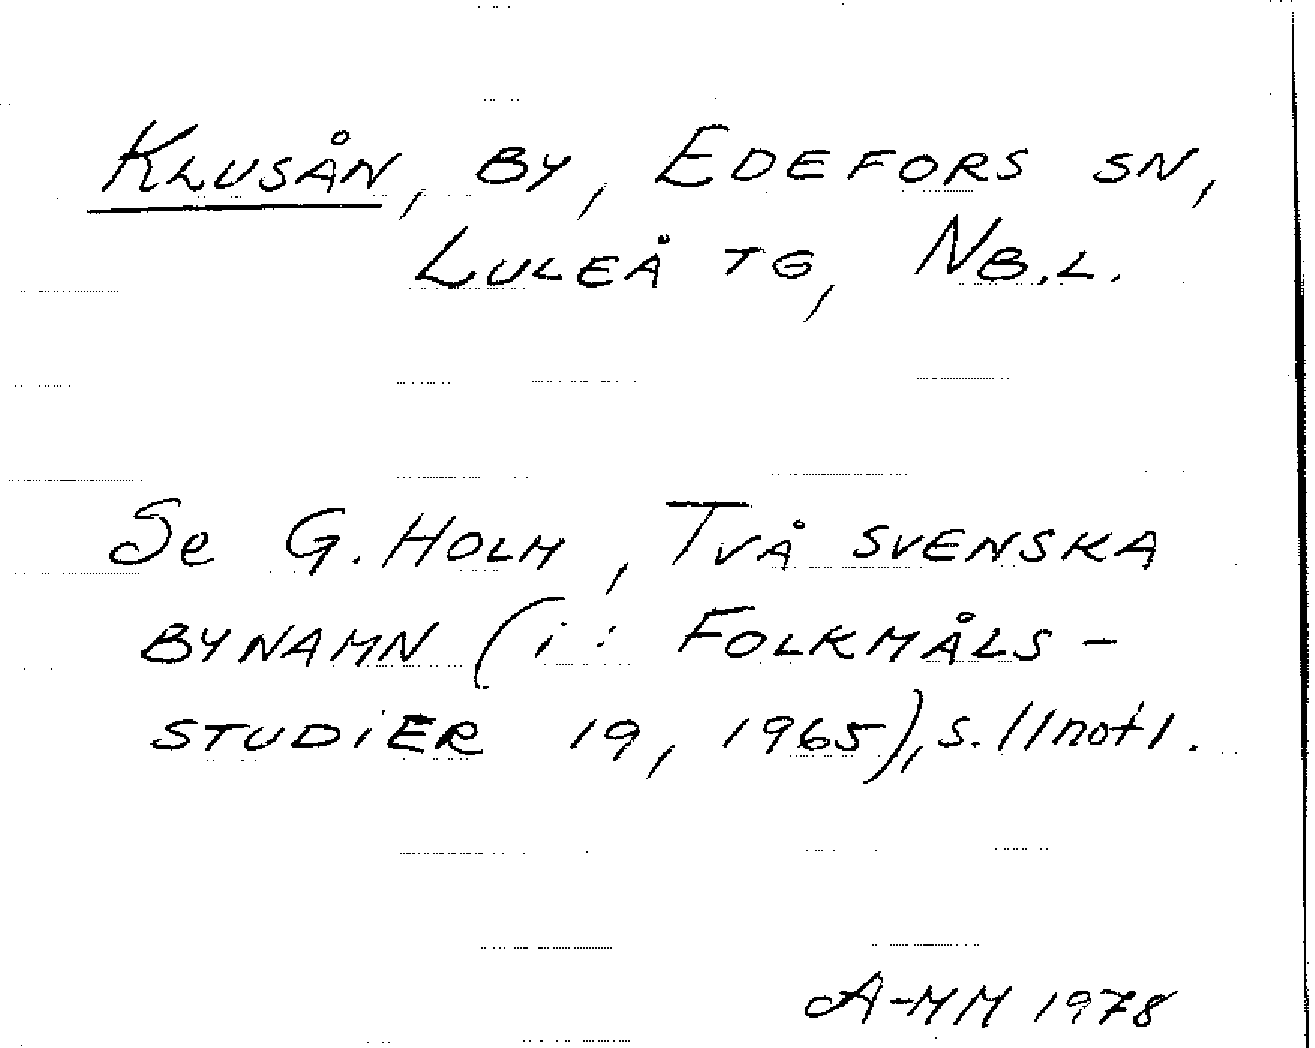 Klusån, by, Edefors sn,
Luleå tg, Nb.l.
Se G. Holm, Två svenska
bynamn (i: Folkmåls-
studier 19, 1965), s. 11 not 1.
A-MM 1978